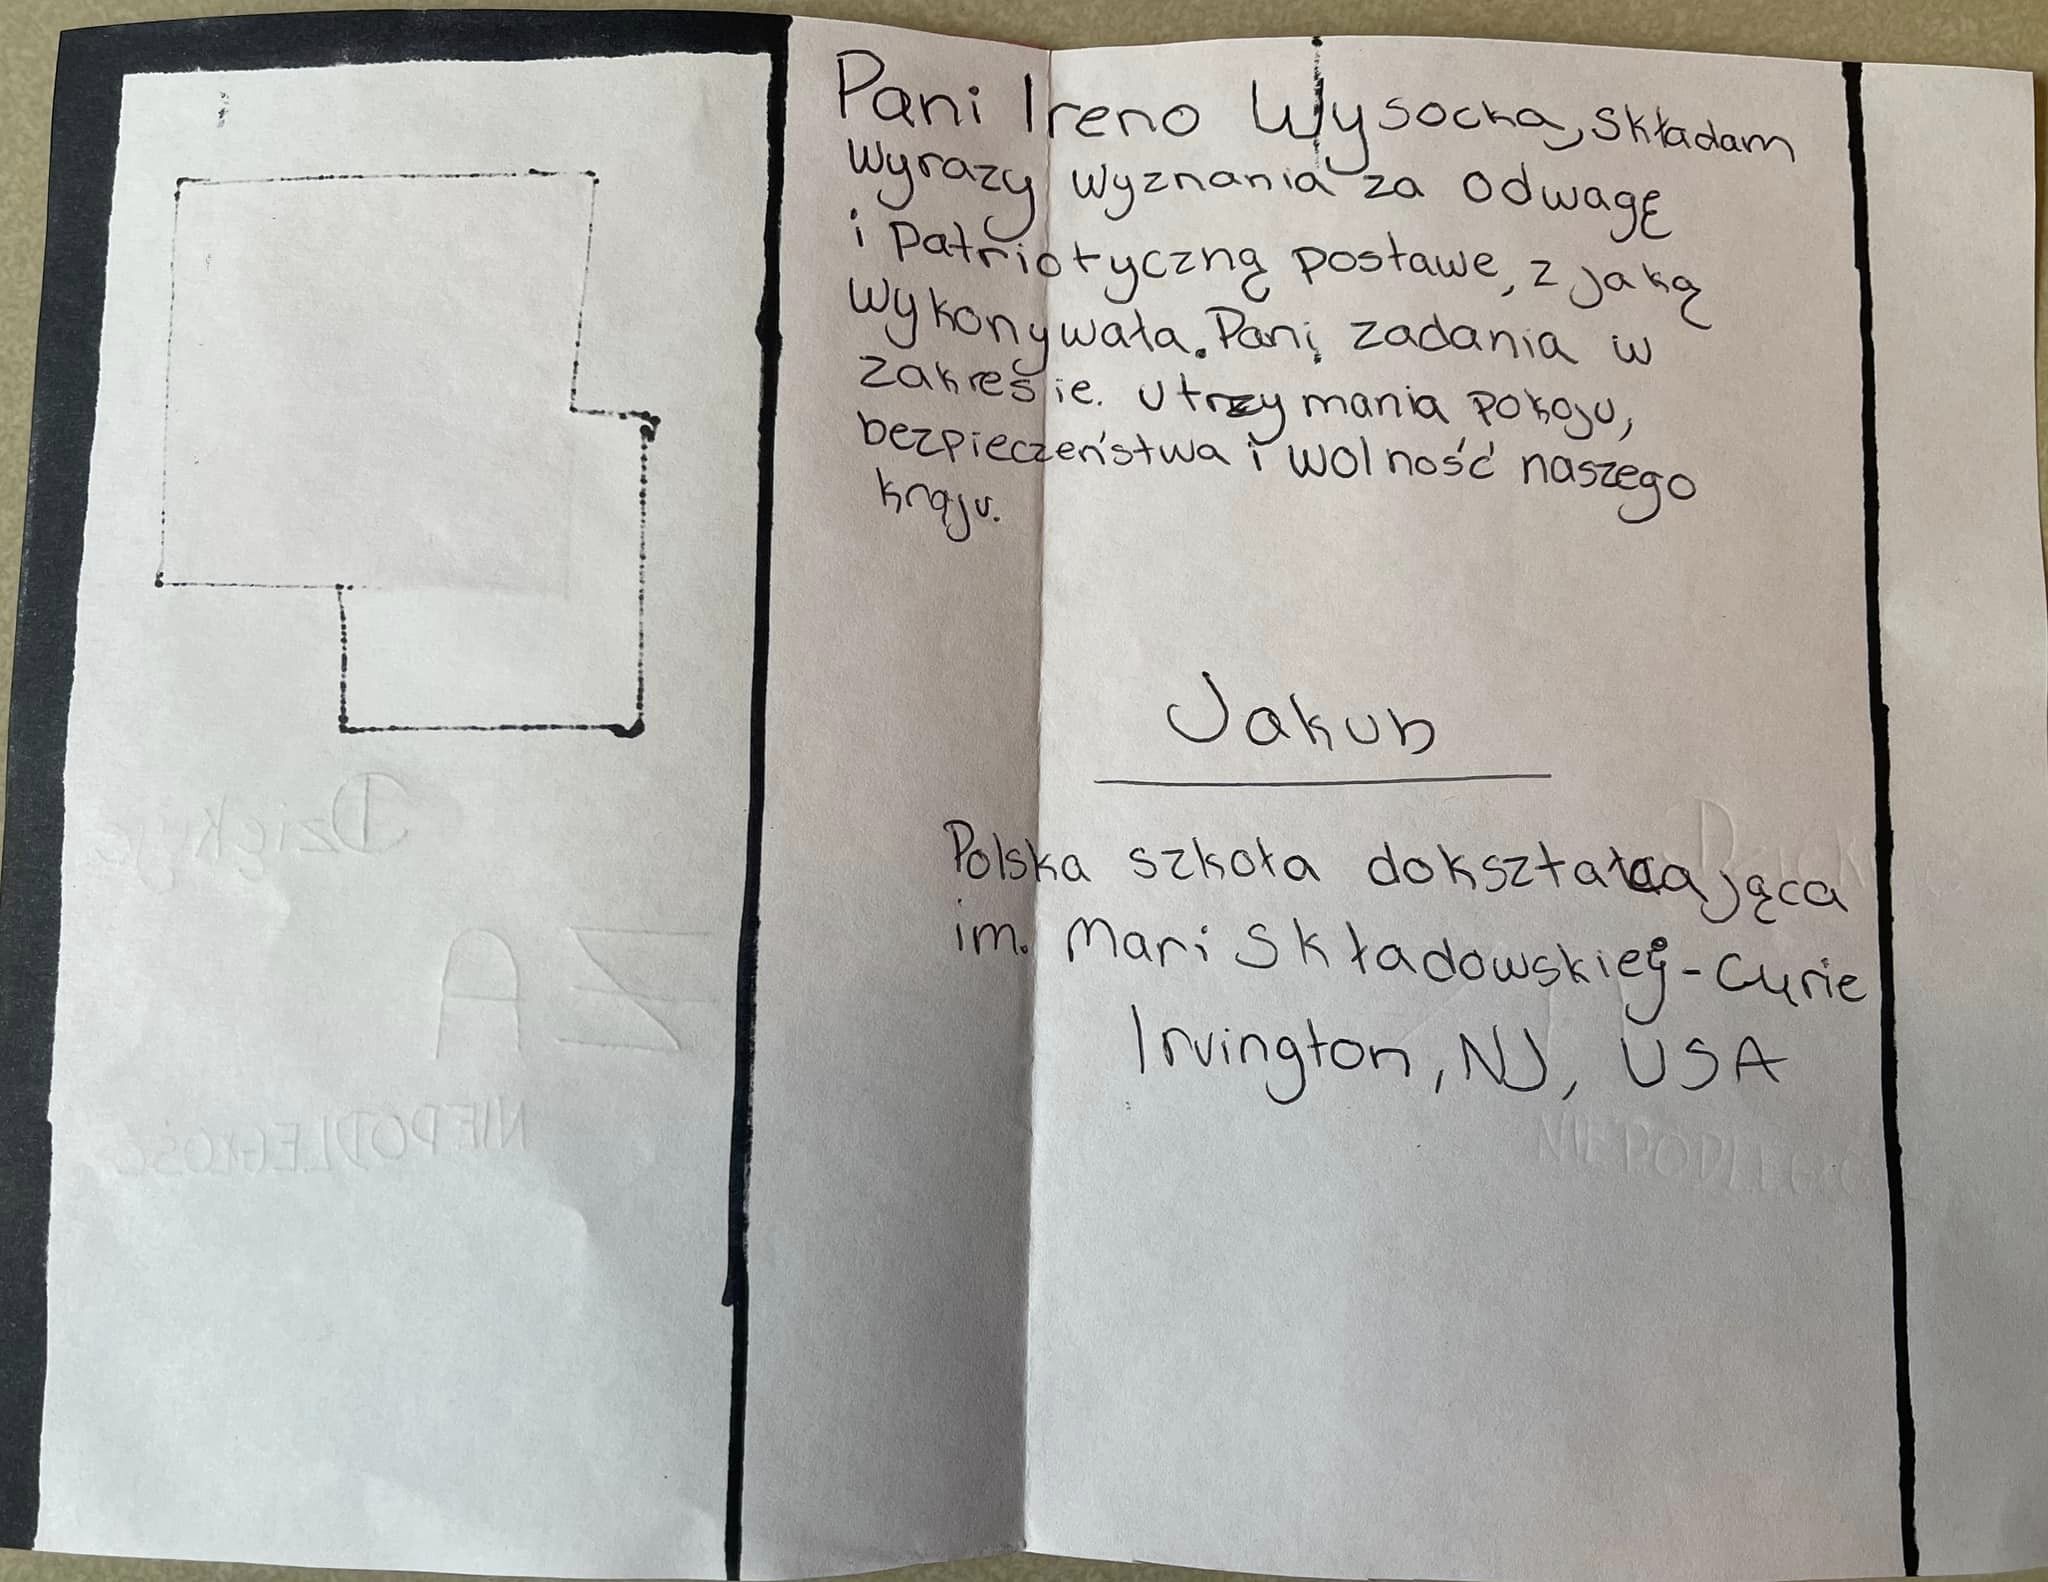 Pani Ireno Wysocka, składam
wyrazy wyznania za odwagę
i patriotyczną postawe, z jaką
wykonywała. Pani zadania w
zakreśie. utrzymania pokoju,
bezpieczeństwa i wolność naszego
kraju.
Jakub
Polska szkoła dokształcająca
im. Mari Składowskiej-Curie
Irvington, NJ, USA
Dziękuje
ZA
NIEPODLEGŁOŚĆ